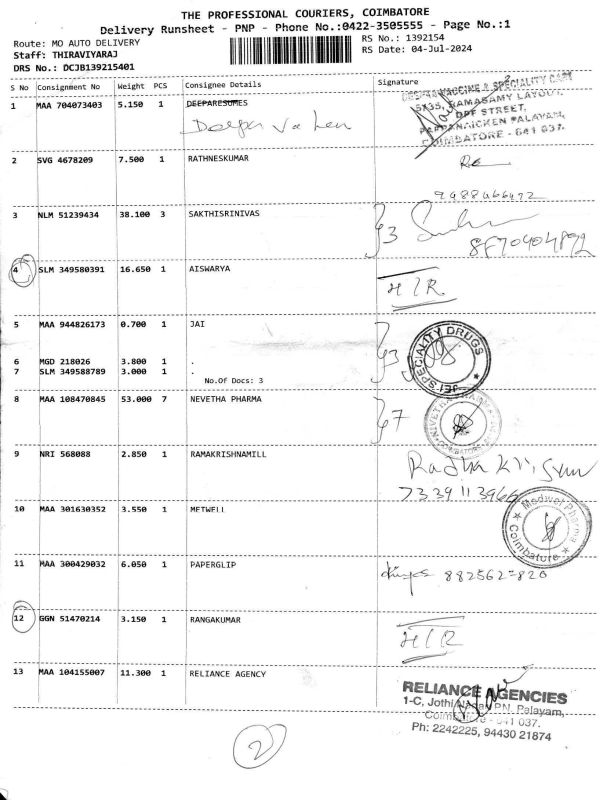 THE PROFESSIONAL COURIERS, COIMBATORE
Delivery Runsheet - PNP - Phone No.:0422-3505555 - Page No.:1
Route: MO AUTO DELIVERY
RS No.: 1392154
Staff: THIRAVIYARAJ
RS Date: 04-Jul-2024
DRS No.: DCJB139215401
S No Consignment No Weight PCS Consignee Details Signature
1 MAA 704073403 5.150 1 DEEPARESUMES
DEEPA VACCINE & SPECIALITY CARE
RAMASAMY LAYOUT,
OPP STREET,
PAPPANAICKEN PALAYAM,
COIMBATORE - 641 037.
2 SVG 4678209 7.500 1 RATHNESKUMAR
3 NLM 51239434 38.100 3 SAKTHISRINIVAS
}3
4 SLM 349580391 16.650 1 AISWARYA
H/R
5 MAA 944826173 0.700 1 JAI
6 MGD 218026 3.800 1 .
7 SLM 349588789 3.000 1 .
No.Of Docs: 3
}3
JEI SPECIALITY DRUGS
8 MAA 108470845 53.000 7 NEVETHA PHARMA
}7
9 NRI 568088 2.850 1 RAMAKRISHNAMILL
Radha
10 MAA 301630352 3.550 1 METWELL
Medwel Pharma
Coimbatore
11 MAA 300429032 6.050 1 PAPERGLIP
12 GGN 51470214 3.150 1 RANGAKUMAR
H/R
13 MAA 104155007 11.300 1 RELIANCE AGENCY
RELIANCE AGENCIES
1-C, Jothi Nagar P.N. Palayam,
Coimbatore - 641 037.
Ph: 2242225, 94430 21874
2